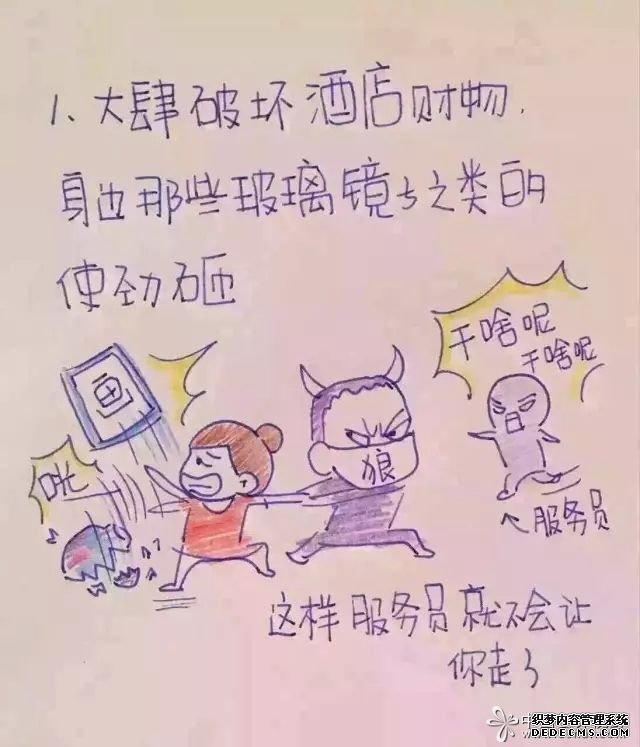 1、大肆破坏酒店财物,
身边那些玻璃镜子之类的
使劲砸
干啥呢
干啥呢
画
咣
狼
服务员
这样服务员就不会让
你走了
中国
织梦内容管理系统
DEDECMS.COM